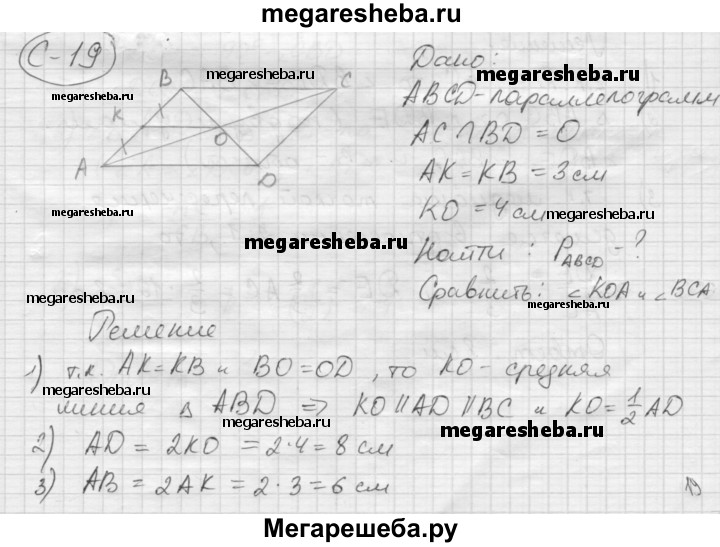 megaresheba.ru
С-19
Дано:
B
megaresheba.ru
C
megaresheba.ru
megaresheba.ru
ABCD-параллелограмм
К
O
AC∩BD = O
A
D
AK = KB = 3 см
KO = 4 см
megaresheba.ru
megaresheba.ru
Найти: P_ABCD - ?
megaresheba.ru
Сравнить: ∠KOA и ∠BCA
Решение
megaresheba.ru
1) т.к. AK=KB и BO=OD, то KO- средняя
megaresheba.ru
линия в ABD ⇒ KO||AD||BC и KO=1/2 AD
megaresheba.ru
2) AD = 2KO = 2·4 = 8 см
3) AB = 2AK = 2·3 = 6 см
megaresheba.ru
19
Мегарешеба.ру